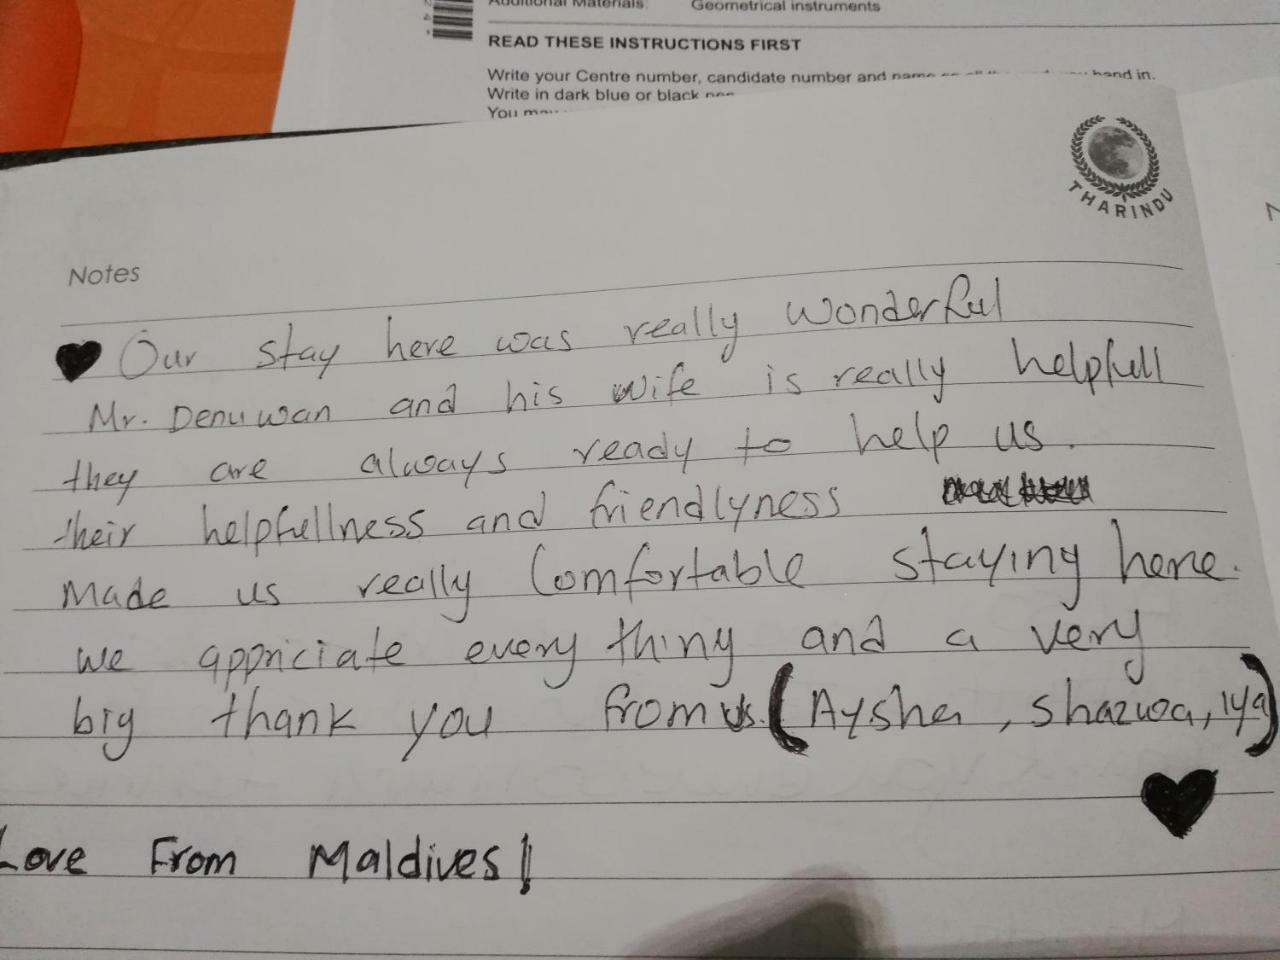 Additional Materials: Geometrical instruments
READ THESE INSTRUCTIONS FIRST
Write your Centre number, candidate number and name hand in.
Write in dark blue or black
You may
THARINDU
Notes
Our stay here was really wonderful
Mr. Denuwan and his wife is really helpfull
they are always ready to help us.
their helpfullness and friendlyness
Made us really Comfortable staying here.
we appriciate every thing and a very
big thank you from us. (Aysha, Shazwa, iya)
Love From Maldives!